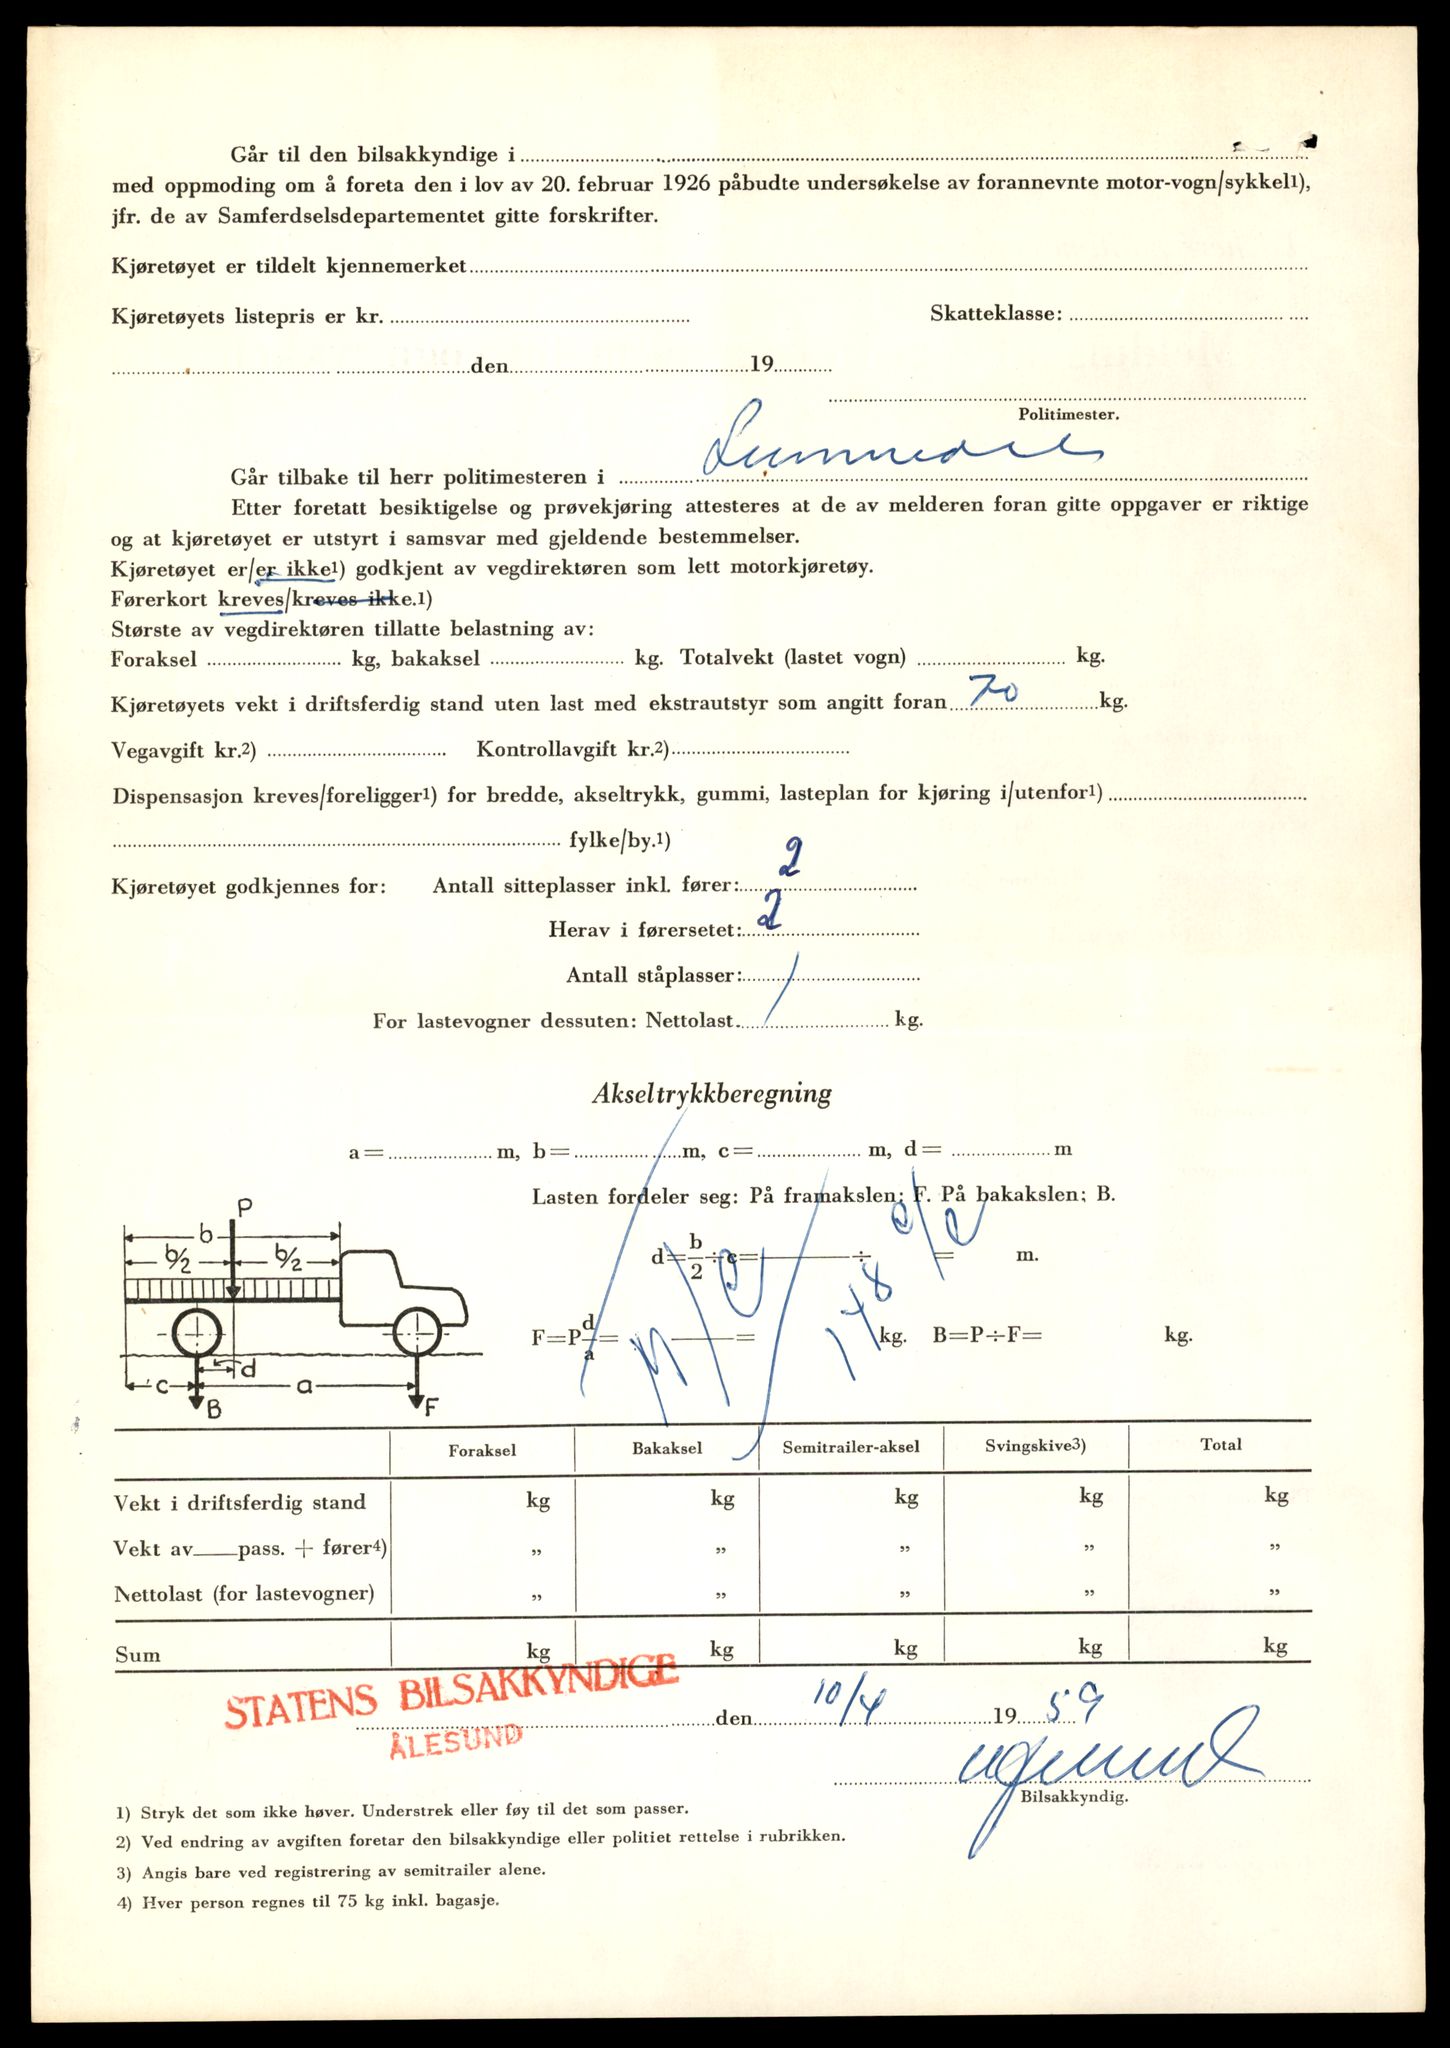 Går til den bilsakkyndige i
med oppmoding om å foreta den i lov av 20. februar 1926 påbudte undersøkelse av forannevnte motor-vogn/sykkel1),
jfr. de av Samferdselsdepartementet gitte forskrifter.
Kjøretøyet er tildelt kjennemerket
Kjøretøyets listepris er kr. Skatteklasse:
den 19
Politimester.
Går tilbake til herr politimesteren i
Etter foretatt besiktigelse og prøvekjøring attesteres at de av melderen foran gitte oppgaver er riktige
og at kjøretøyet er utstyrt i samsvar med gjeldende bestemmelser.
Kjøretøyet er/er ikke1) godkjent av vegdirektøren som lett motorkjøretøy.
Førerkort kreves/kreves ikke.1)
Største av vegdirektøren tillatte belastning av:
Foraksel kg, bakaksel kg. Totalvekt (lastet vogn) kg.
Kjøretøyets vekt i driftsferdig stand uten last med ekstrautstyr som angitt foran 70 kg.
Vegavgift kr.2) Kontrollavgift kr.2)
Dispensasjon kreves/foreligger1) for bredde, akseltrykk, gummi, lasteplan for kjøring i/utenfor1)
fylke/by.1)
Kjøretøyet godkjennes for: Antall sitteplasser inkl. fører: 2
Herav i førersetet: 2
Antall ståplasser: /
For lastevogner dessuten: Nettolast. kg.
Akseltrykkberegning
a= m, b= m, c= m, d= m
Lasten fordeler seg: På framakslen; F. På bakakslen; B.
P
b
b/2 b/2
d=b/2÷c= ÷ = m.
148
F=P d/a= = kg. B=P÷F= kg.
c d a
B F
Foraksel Bakaksel Semitrailer-aksel Svingskive3) Total
Vekt i driftsferdig stand kg kg kg kg kg
Vekt av pass. + fører4) „ „ „ „ „
Nettolast (for lastevogner) „ „ „ „ „
Sum kg kg kg kg kg
STATENS BILSAKKYNDIGE
ÅLESUND
den 10/4 1959
Bilsakkyndig.
1) Stryk det som ikke høver. Understrek eller føy til det som passer.
2) Ved endring av avgiften foretar den bilsakkyndige eller politiet rettelse i rubrikken.
3) Angis bare ved registrering av semitrailer alene.
4) Hver person regnes til 75 kg inkl. bagasje.